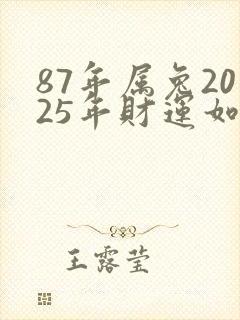 87年属兔20
25年财運如
王露莹